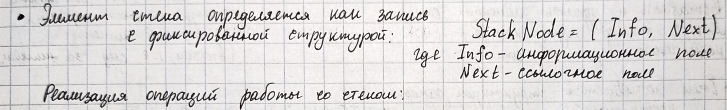 • Элемент стека определяется как запись
с фиксированной структурой: Stack Node = (Info, Next)
где Info - информационное поле
Next - ссылочное поле
Реализация операций работы со стеком: